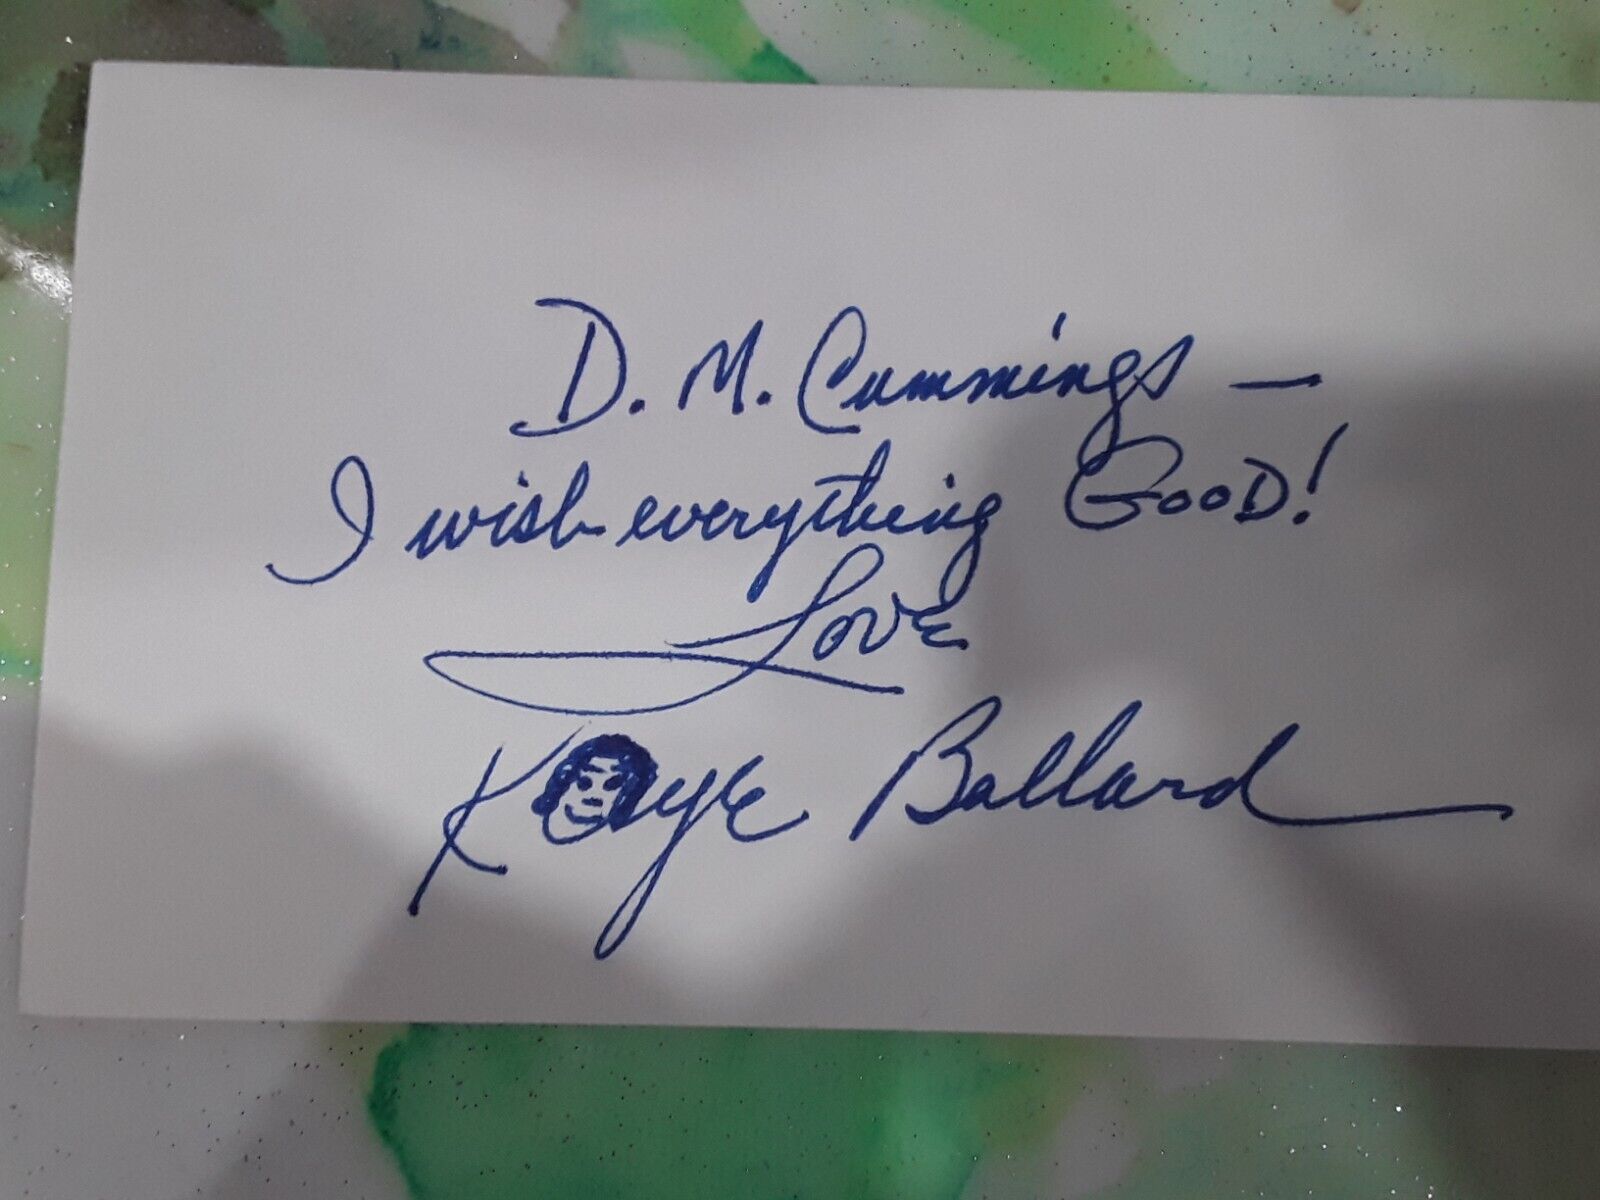 D. M. Cummings —
I wish everything GOOD!
Love
Kaye Ballard